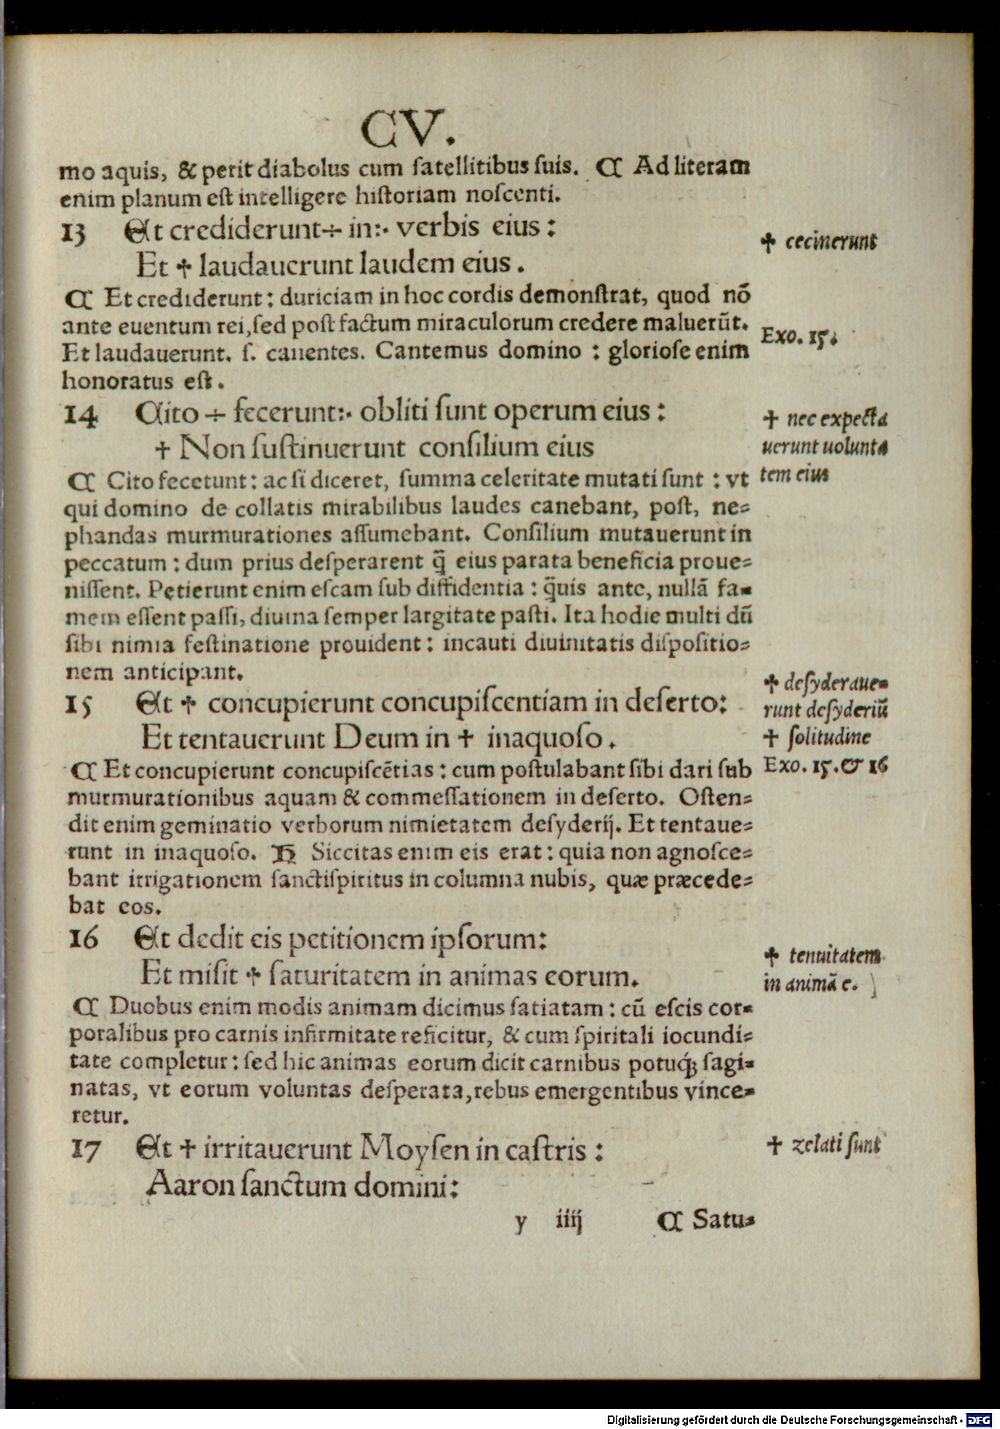 CV.
mo aquis, & perit diabolus cum ſatellitibus ſuis. ¶ Ad literam
enim planum eſt intelligere hiſtoriam noſcenti.
13 Et crediderunt÷ in:· verbis eius :
✝ cecinerunt
Et ✝ laudauerunt laudem eius .
¶ Et crediderunt : duriciam in hoc cordis demonſtrat, quod nõ
ante euentum rei, ſed poſt factum miraculorum credere maluerũt.
Exo. 15.
Et laudauerunt. ſ. canentes. Cantemus domino : glorioſe enim
honoratus eſt .
14 Cito ÷ fecerunt:· obliti ſunt operum eius :
✝ nec expecta
✝ Non ſuſtinuerunt conſilium eius
uerunt uolunta
tem eius
¶ Cito fecetunt : ac ſi diceret, ſumma celeritate mutati ſunt : vt
qui domino de collatis mirabilibus laudes canebant, poſt, ne⸗
phandas murmurationes aſſumebant. Conſilium mutauerunt in
peccatum : dum prius deſperarent q̃ eius parata beneficia proue⸗
niſſent. Petierunt enim eſcam ſub diffidentia : q̃uis ante, nullã fa⸗
mem eſſent paſſi, diuina ſemper largitate paſti. Ita hodie multi dũ
ſibi nimia feſtinatione prouident : incauti diuinitatis diſpoſitio⸗
nem anticipant.
15 Et ✝ concupierunt concupiſcentiam in deſerto:
✝ deſyderaue⸗
runt deſyderiũ
Et tentauerunt Deum in ✝ inaquoſo .
✝ ſolitudine
¶ Et concupierunt concupiſcẽtias : cum poſtulabant ſibi dari ſub
Exo. 15. & 16
murmurationibus aquam & commeſſationem in deſerto. Oſten⸗
dit enim geminatio verborum nimietatem deſyderij. Et tentaue⸗
runt in inaquoſo. Siccitas enim eis erat : quia non agnoſce⸗
bant irrigationem ſanctiſpiritus in columna nubis, quæ præcede⸗
bat eos.
16 Et dedit eis petitionem ipſorum:
✝ tenuitatem
Et miſit ✝ ſaturitatem in animas eorum.
in animã e.
¶ Duobus enim modis animam dicimus ſatiatam : cũ eſcis cor⸗
poralibus pro carnis infirmitate reficitur, & cum ſpiritali iocundi⸗
tate completur : ſed hic animas eorum dicit carnibus potuqꝫ ſagi⸗
natas, vt eorum voluntas deſperata, rebus emergentibus vince⸗
retur.
17 Et ✝ irritauerunt Moyſen in caſtris :
✝ zelati ſunt
Aaron ſanctum domini:
y iiij ¶ Satu⸗
Digitalisierung gefördert durch die Deutsche Forschungsgemeinschaft - DFG